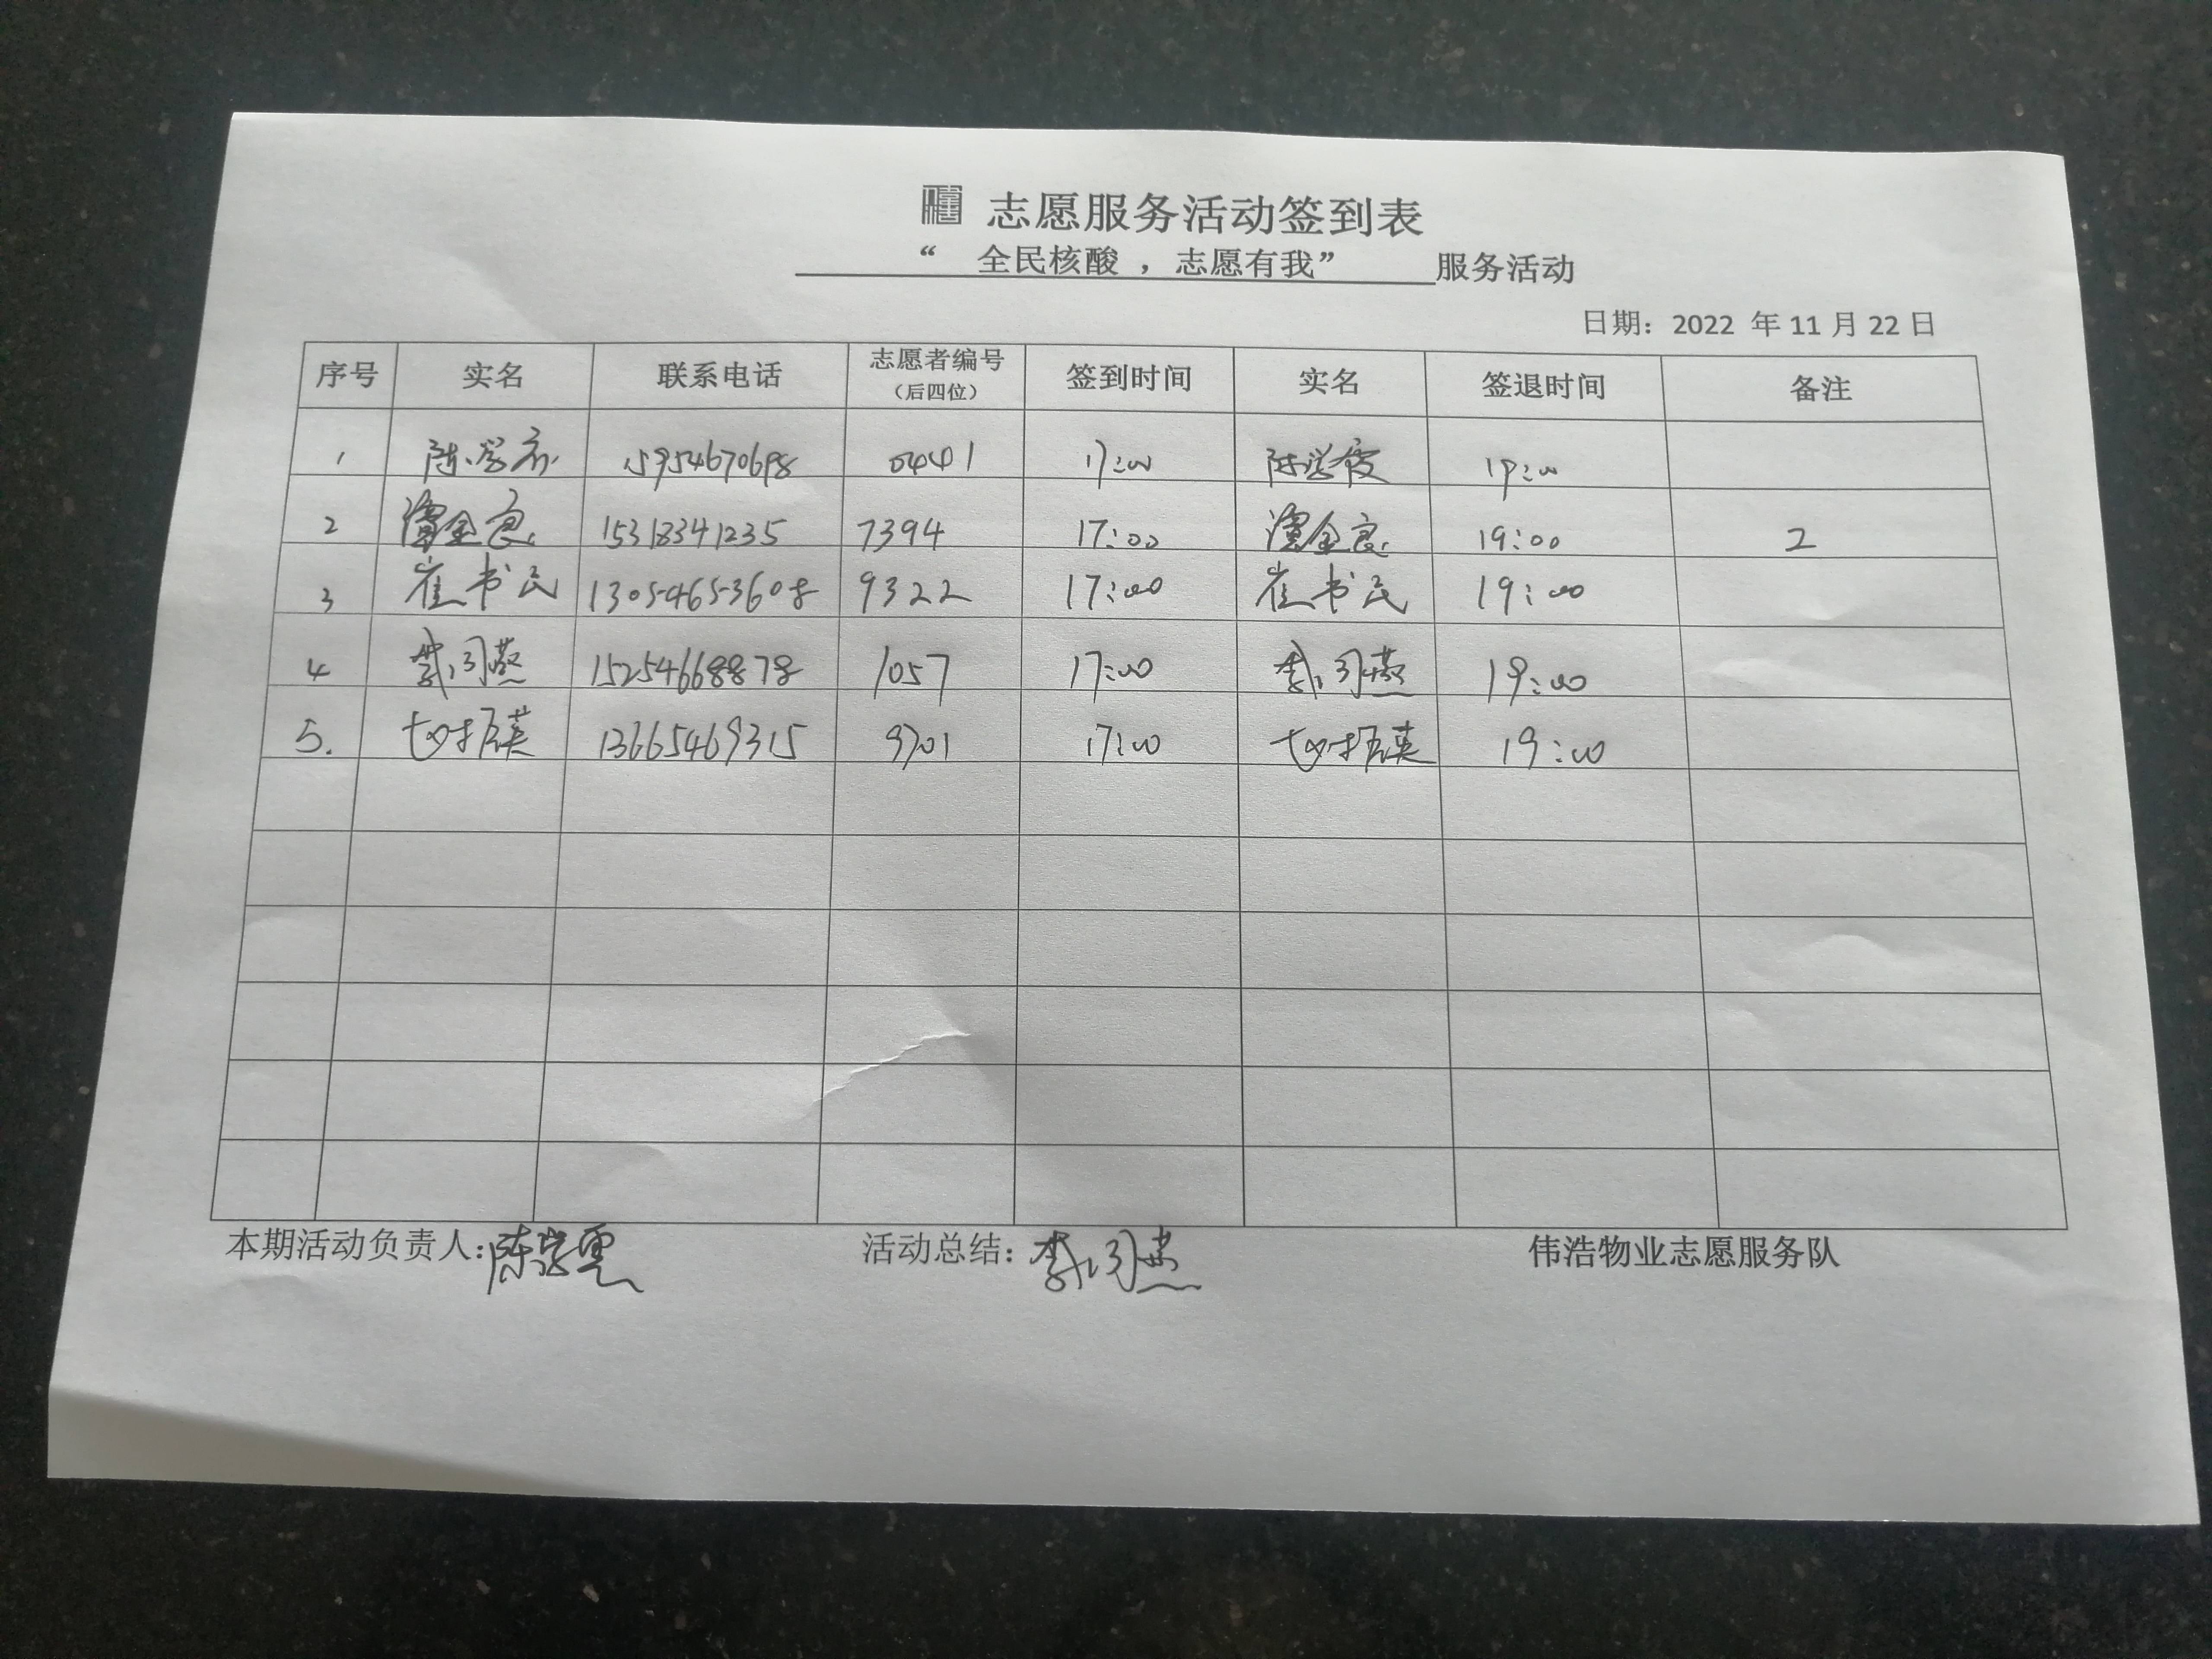 志愿服务活动签到表
“ 全民核酸 ，志愿有我” 服务活动
日期：2022 年 11 月 22 日
序号 实名 联系电话 志愿者编号（后四位） 签到时间 实名 签退时间 备注
1 陈学霞 15954670698 0441 17:00 陈学霞 19:00
2 谭金良 15318341235 7394 17:00 谭金良 19:00 2
3 崔书民 13054653608 9322 17:00 崔书民 19:00
4 李闪燕 15254668878 1057 17:00 李闪燕 19:00
5. 13665469315 9701 17:00 19:00
本期活动负责人：陈学霞 活动总结：李闪燕 伟浩物业志愿服务队